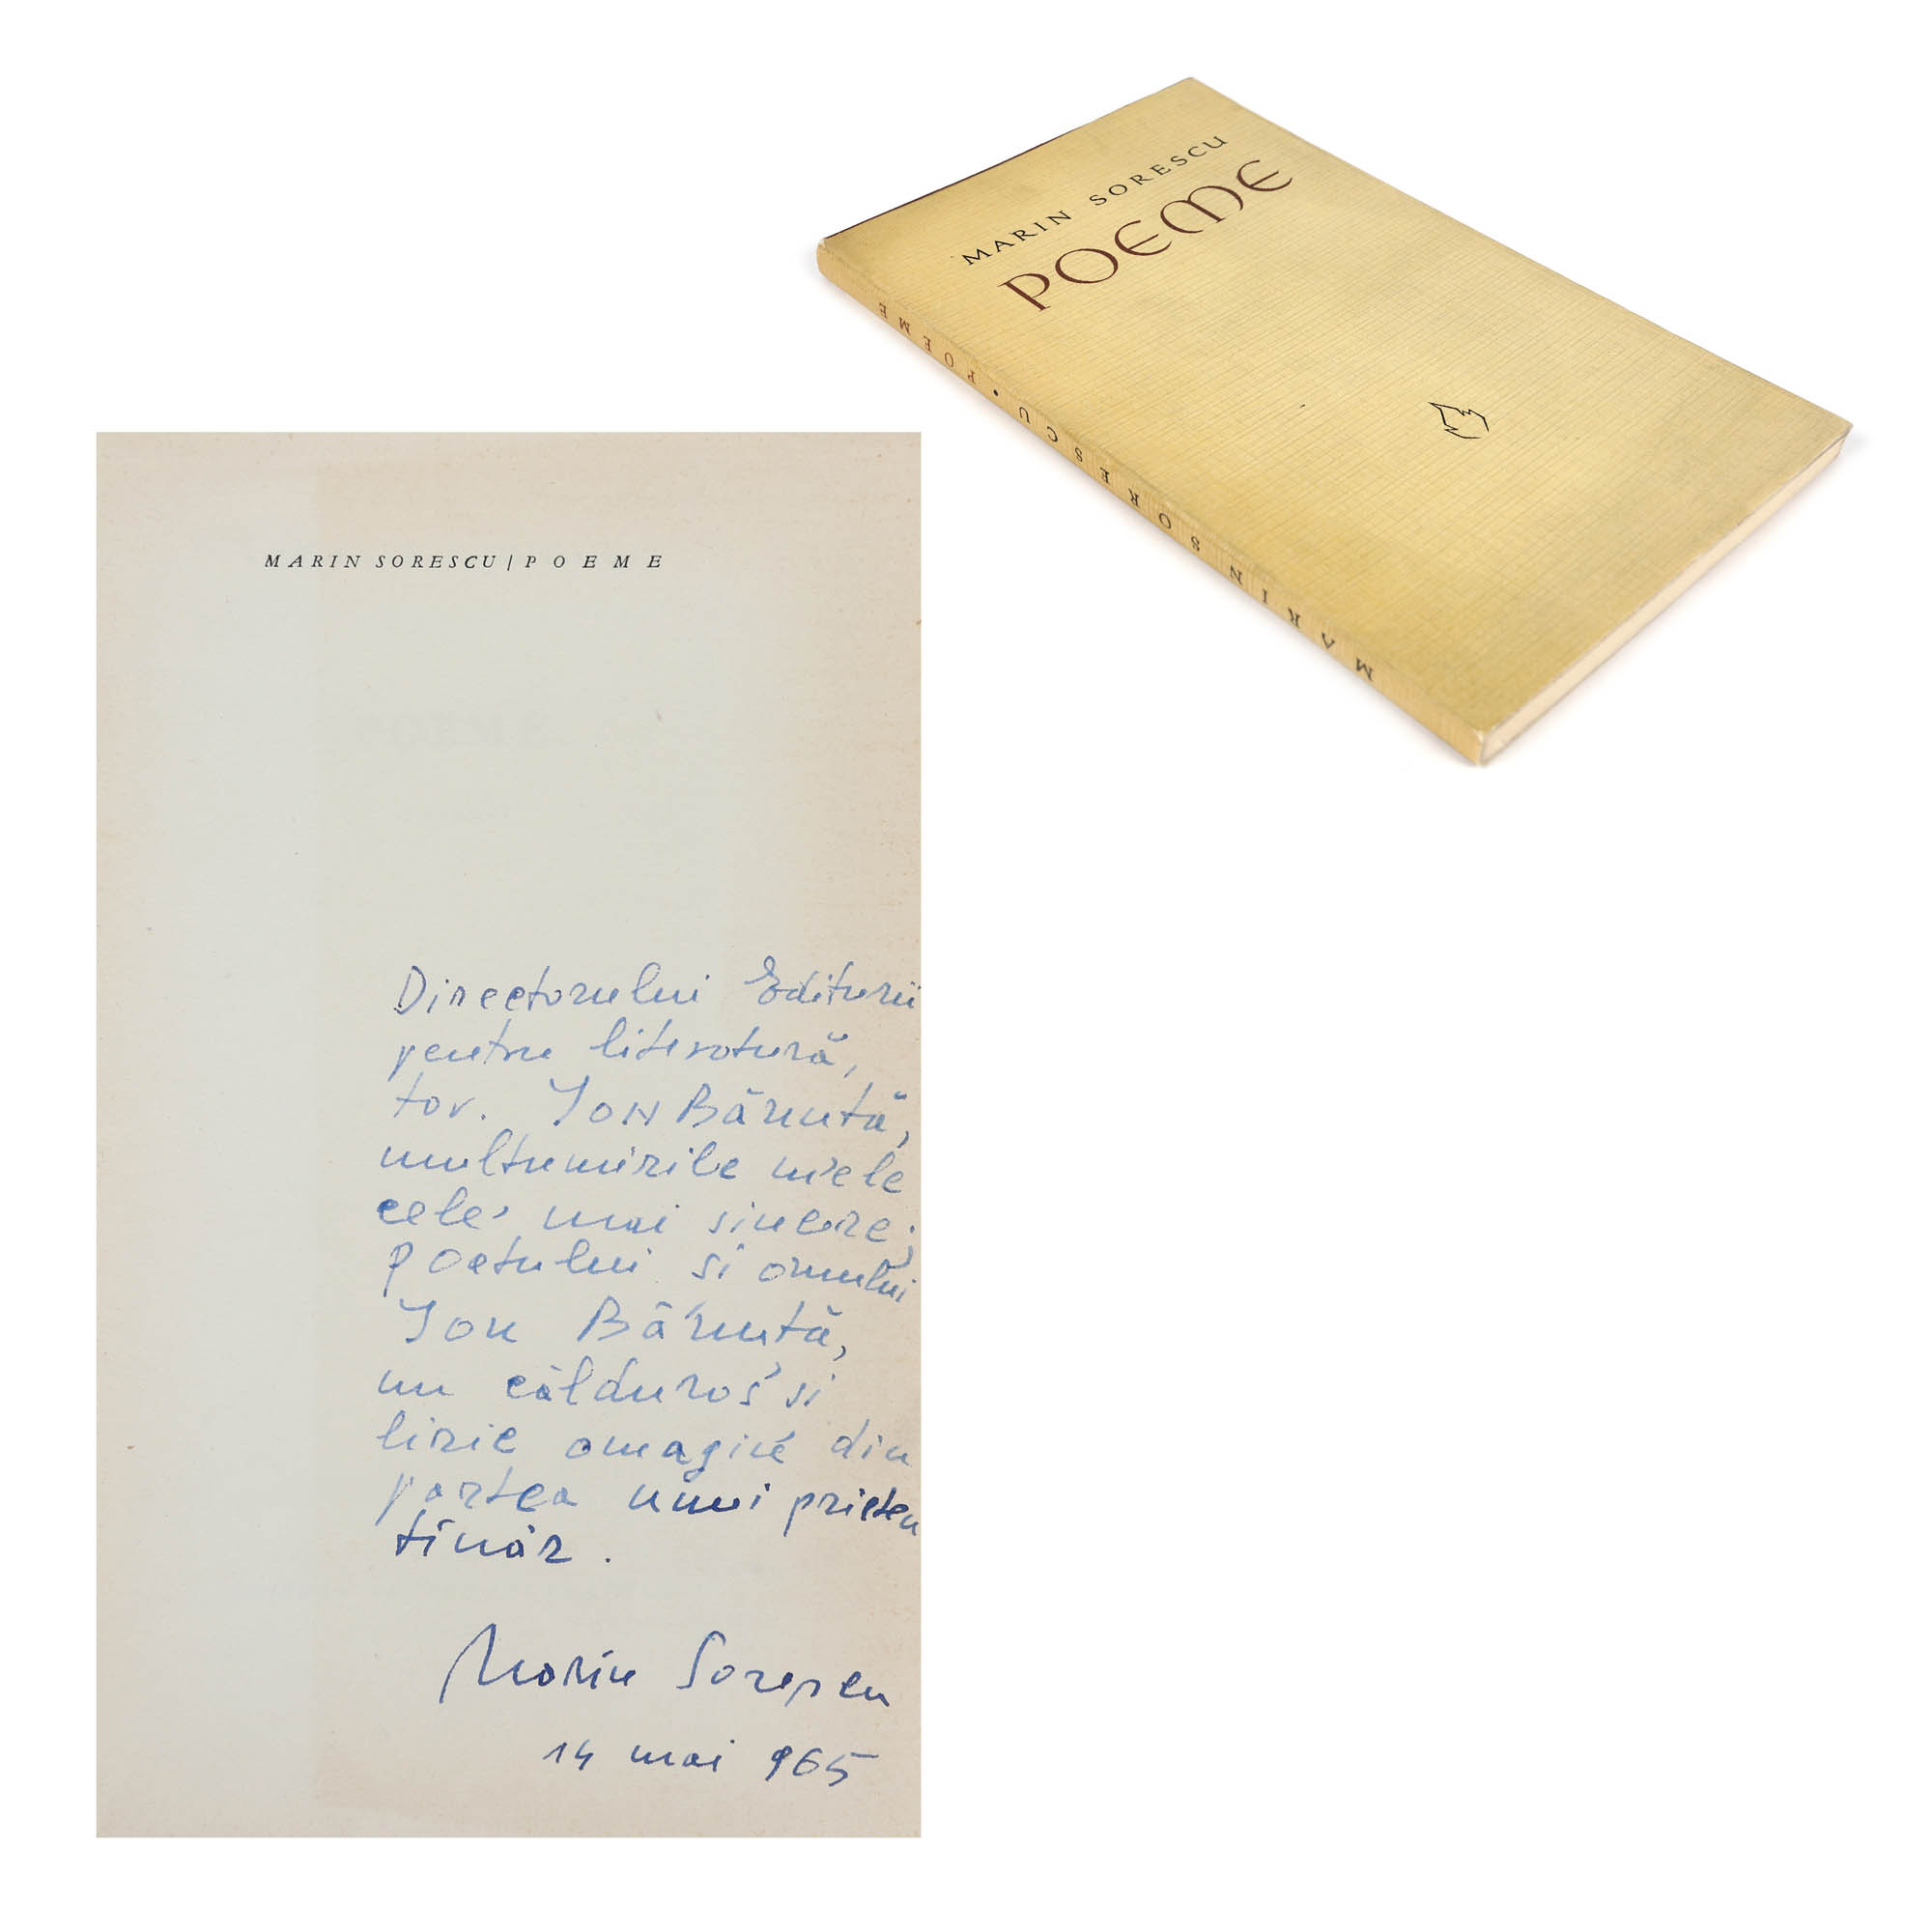 MARIN SORESCU
POEME
MARIN SORESCU • POEME
MARIN SORESCU | POEME
Directorului Editurii
pentru literatură,
tov. Ion Bănuță,
mulțumirile mele
cele mai sincere;
poetului și omului
Ion Bănuță,
un călduros și
liric omagiu din
partea unui prieten
tînăr.
Marin Sorescu
14 mai 965